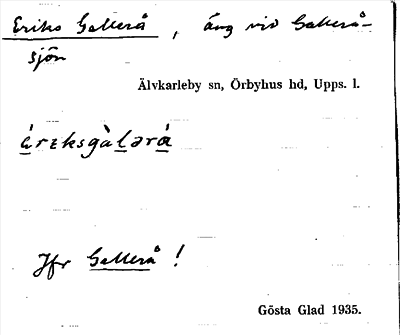 Eriks Gallerå, äng vid Gallerå-
sjön
Älvkarleby sn, Örbyhus hd, Upps. l.
Jfr Gallerå !
Gösta Glad 1935.